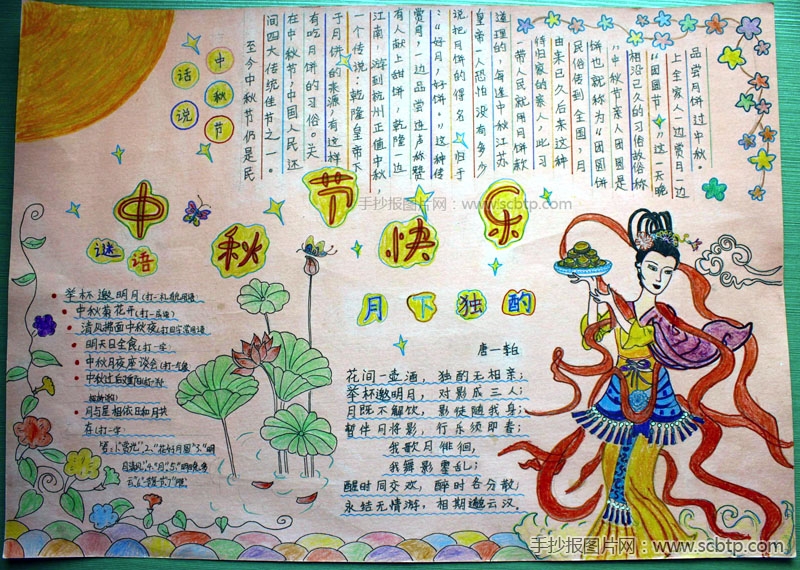 话说
中秋节
至今中秋节仍是民
间四大传统佳节之一。
在中秋节,中国人民还
有吃月饼的习俗。关
于月饼的来源,有这样
一个传说:乾隆皇帝下
江南,游到杭州正值中秋,
有人献上甜饼,乾隆一边
赏月,边品尝连声称赞
:“好月,好饼。”这种传
说把月饼的得名,归于
皇帝一人恐怕没有多少
道理的,每逢中秋江苏
一带人民就用月饼款
待归家的亲人,此习
由来已久后来这种
民俗传到全国,月
饼也就称为“团圆饼
”中秋节亲人团圆是
相沿已久的习俗故俗称
“团圆节”。这一天晚
上全家人一边赏月一边
品尝月饼过中秋。
手抄报图片网:www.scbtp.com
中秋节快乐
谜语
举杯邀明月(打一礼貌用语)
中秋菊花开(打一成语)
清风拂面中秋夜(打四字常用语)
明天日全食(打一字)
中秋月夜座谈会(打一
中秋过后又重阳(打一
月与星相依日和月共
存(打一字)
月下独酌
唐—李白
花间一壶酒,独酌无相亲;
举杯邀明月,对影成三人;
月既不解饮,影徒随我身;
暂伴月将影,行乐须即春;
我歌月徘徊,
我舞影零乱;
醒时同交欢,醉时各分散,
永结无情游,相期邈云汉。
手抄报图片网:www.scbtp.com